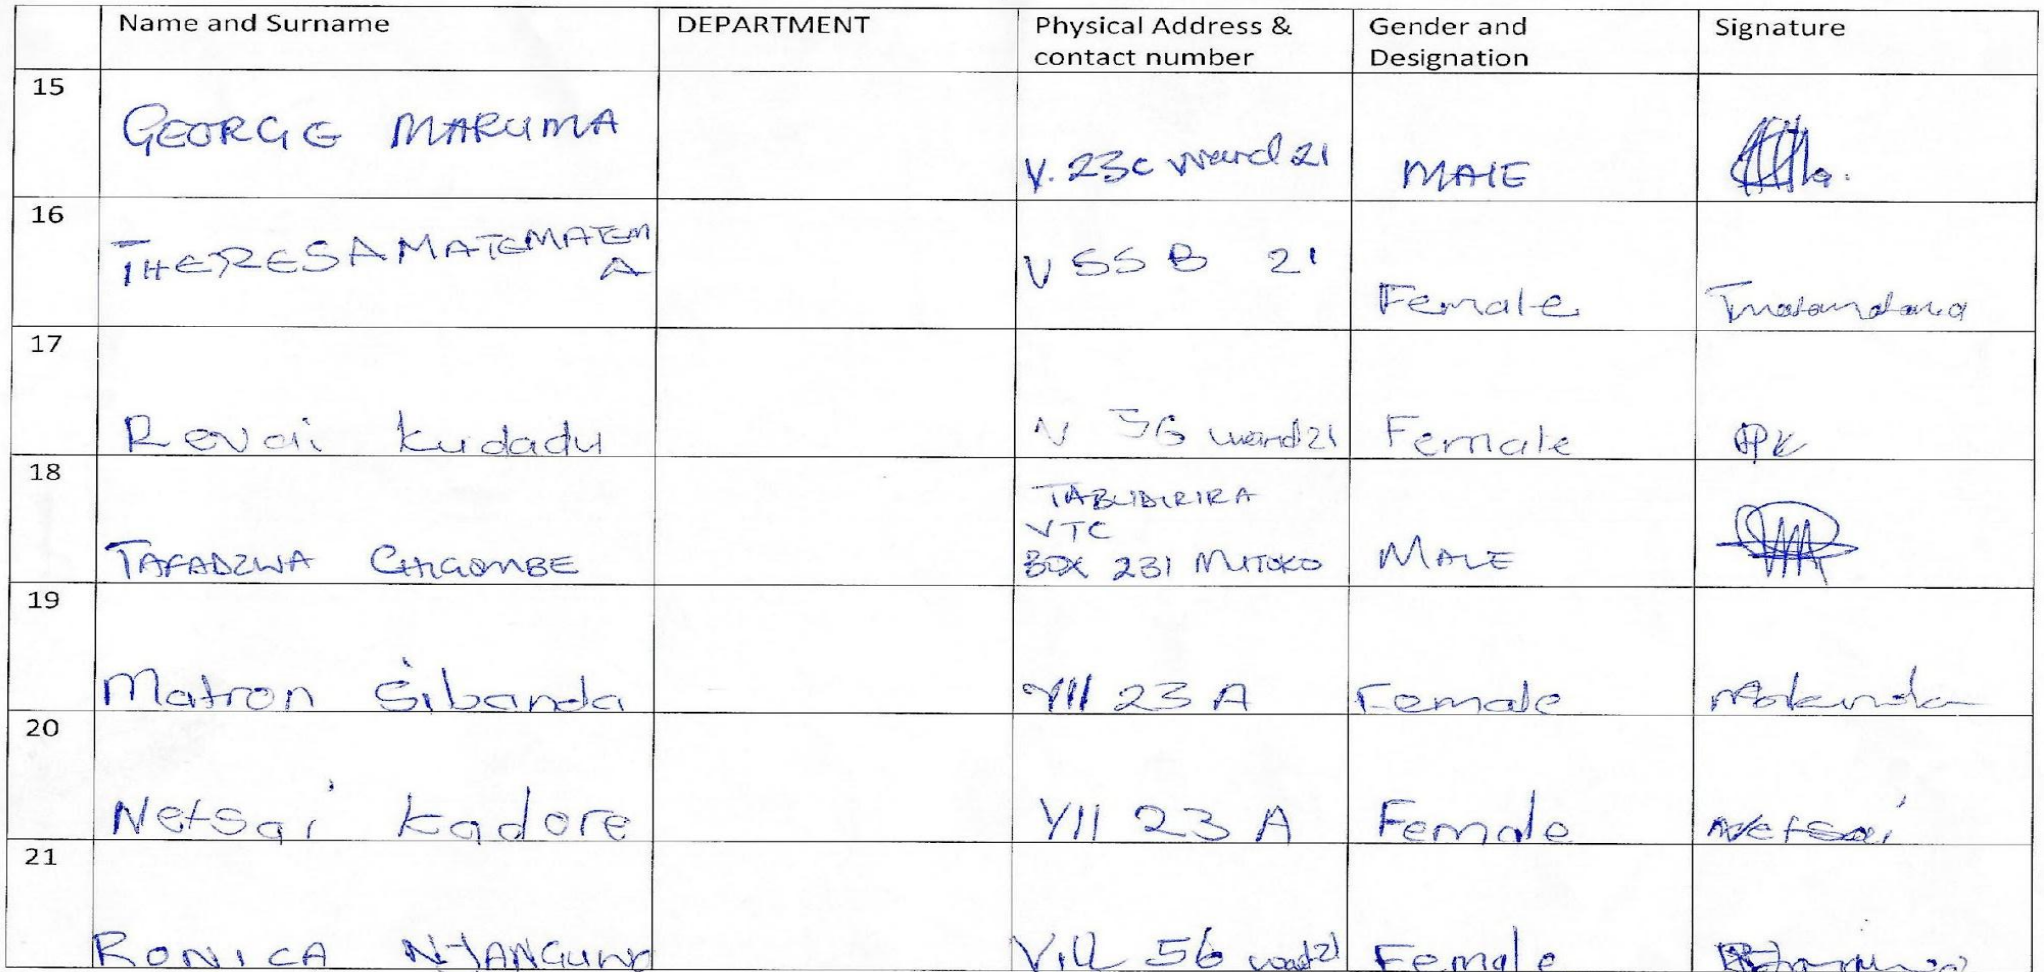 Name and Surname DEPARTMENT Physical Address & contact number Gender and Designation Signature
15 GEORGE MARUMA V. 23c ward 21 MALE
16 THERESA MATEMATEMA V 55 B 21 Female
17 Revai Kudadu V 56 ward 21 Female
18 TAFADZWA CHIGOMBE VTC BOX 231 MUTOKO MALE
19 Matron Sibanda Vill 23 A Female
20 Netsai Kadore Vill 23 A Female Netsai
21 RONICA Vill 56 ward 21 Female